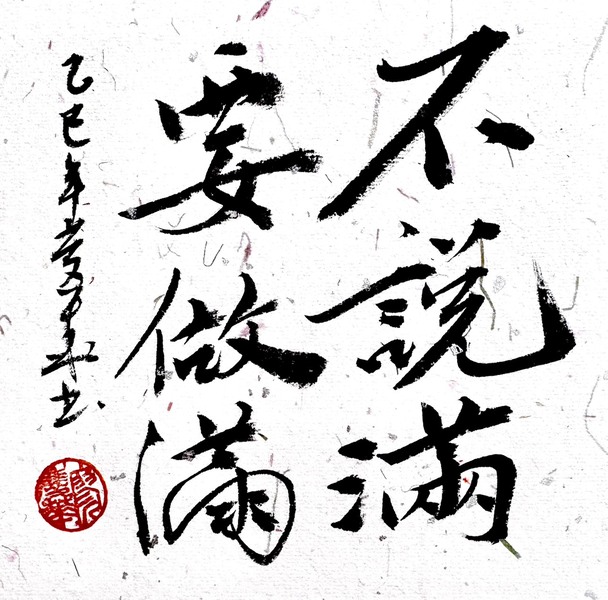 不說滿
要做滿
乙巳年